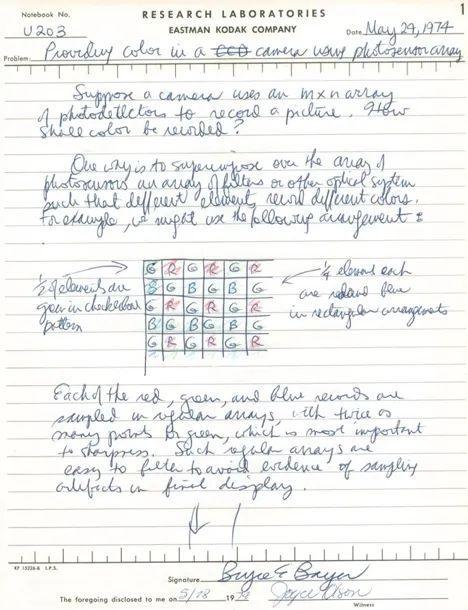 Notebook No.
U203
RESEARCH LABORATORIES
EASTMAN KODAK COMPANY
Date May 29, 1974
1
Problem: Providing color in a CCD camera using photosensor array
Suppose a camera uses an m x n array
of photodetectors to record a picture. How
shall color be recorded?
One way is to superimpose over the array of
photosensors an array of filters or other optical system
such that different elements record different colors.
For example, we might use the following arrangement:
½ of elements are
green in checkerboard
pattern
G R G R G R
B G B G B G
G R G R G R
B G B G B G
G R G R G R
¼ elements each
are red and blue
in rectangular arrangements
Each of the red, green, and blue records are
sampled in regular arrays, with twice as
many points for green, which is most important
to sharpness. Such regular arrays are
easy to filter to avoid evidence of sampling
artifacts in final display.
KP 15226-B I.P.S.
Signature Bryce E Bayer
The foregoing disclosed to me on 5/28 1974 Joyce Olson
Witness